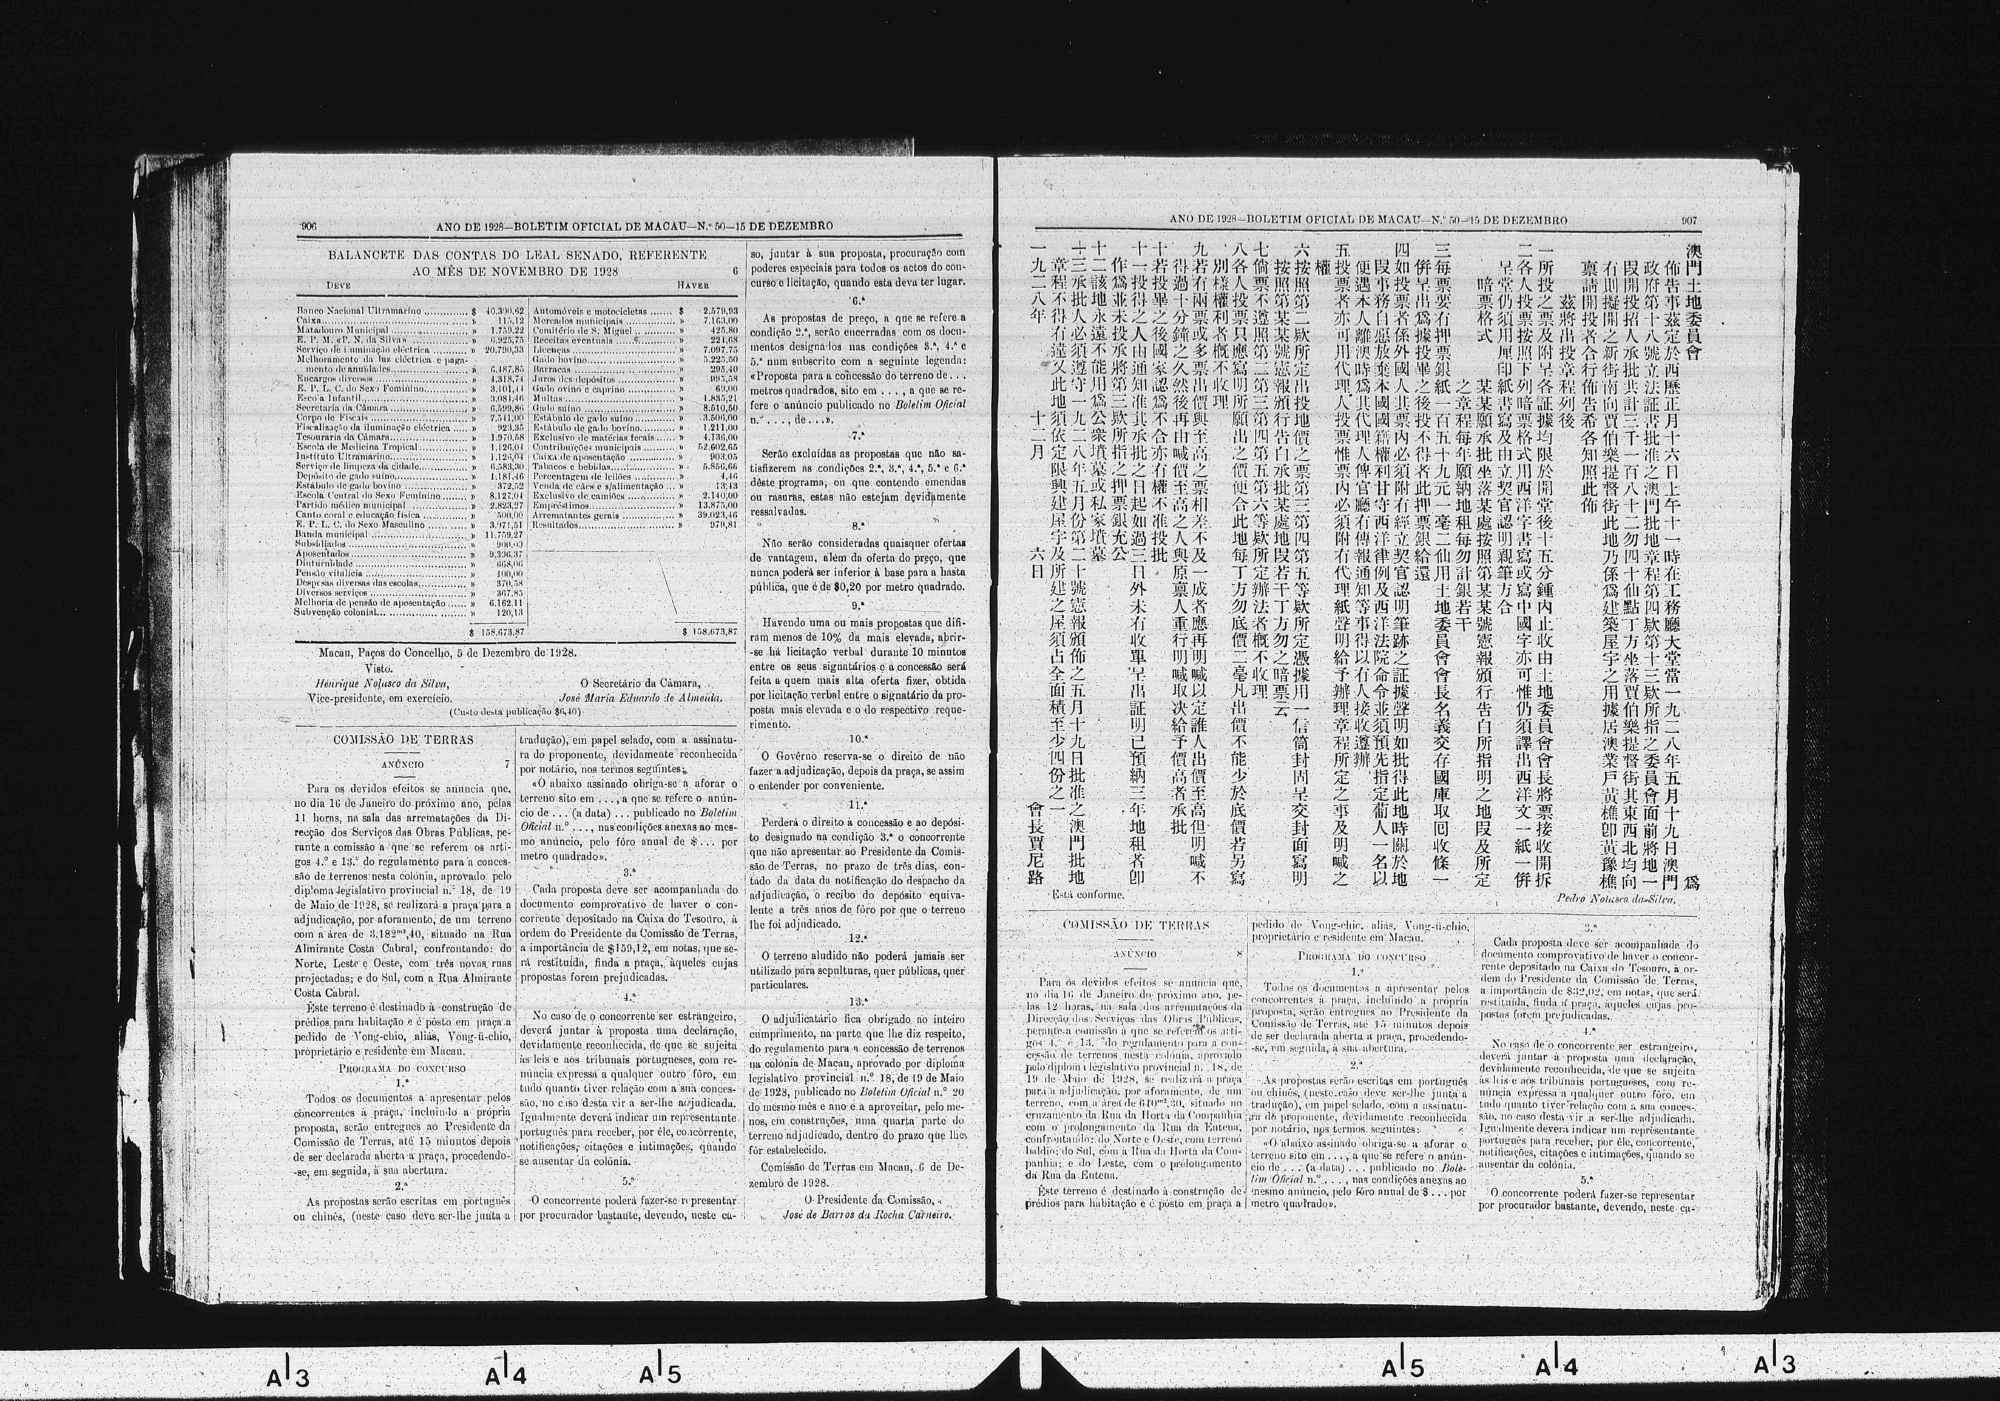 906
ANO DE 1928—BOLETIM OFICIAL DE MACAU—N.º 50—15 DE DEZEMBRO
BALANCETE DAS CONTAS DO LEAL SENADO, REFERENTE
AO MÊS DE NOVEMBRO DE 1928
6
DEVE
HAVER
Banco Nacional Ultramarino ............ $ 40.390,62
Caixa ............ » 115,12
Matadouro Municipal ............ » 1.759,22
E. P. M. «P. N. da Silva» ............ » 6.925,75
Serviço de iluminação eléctrica ............ » 20.790,33
Melhoramento da luz eléctrica e paga-
mento de anuidades ............ » 5.487,85
Encargos diversos ............ » 4.318,74
E. P. L. C. do Sexo Feminino ............ » 3.101,41
Escola Infantil ............ » 3.081,46
Secretaria da Câmara ............ » 6.599,86
Corpo de Fiscais ............ » 7.511,00
Fiscalização da iluminação eléctrica ...... » 923,35
Tesouraria da Câmara ............ » 1.970,58
Escola de Medicina Tropical ............ » 1.126,01
Instituto Ultramarino ............ » 1.126,01
Serviço de limpeza da cidade ............ » 6.583,30
Depósito de gado suíno ............ » 1.181,46
Estábulo de gado bovino ............ » 372,52
Escola Central do Sexo Feminino ........ » 8.127,04
Partido médico municipal ............ » 2.823,27
Canto coral e educação física ............ » 500,00
E. P. L. C. do Sexo Masculino ............ » 3.971,51
Banda municipal ............ » 11.759,27
Subsidiados ............ » 900,00
Aposentados ............ » 9.396,37
Diuturnidade ............ » 668,06
Pensão vitalícia ............ » 100,00
Despesas diversas das escolas ............ » 370,58
Diversos serviços ............ » 367,85
Melhoria de pensão de aposentação ...... » 6.162,11
Subvenção colonial ............ » 120,13
$ 158.673,87
Automóveis e motocicletas ....... $ 2.579,93
Mercados municipais ............ » 7.163,00
Cemitério de S. Miguel ............ » 425,80
Receitas eventuais ............ » 221,68
Licenças ............ » 7.097,75
Gado bovino ............ » 5.225,50
Barracas ............ » 295,40
Juros dos depósitos ............ » 995,58
Gado ovino e caprino ............ » 69,00
Multas ............ » 1.835,21
Gado suíno ............ » 8.510,50
Estábulo de gado suíno ............ » 3.506,00
Estábulo de gado bovino ............ » 1.211,00
Exclusivo de matérias fecais ...... » 4.136,00
Contribuições municipais ........ » 52.602,65
Caixa de aposentação ............ » 903,05
Tabacos e bebidas ............ » 5.856,66
Percentagem de leilões ............ » 4,46
Venda de cães e s/alimentação ... » 13,13
Exclusivo de camiões ............ » 2.140,00
Empréstimos ............ » 13.875,00
Arrematantes gerais ............ » 39.023,46
Resultados ............ » 979,81
$ 158.673,87
Macau, Paços do Concelho, 5 de Dezembro de 1928.
Visto.
Henrique Nolasco da Silva,
Vice-presidente, em exercício.
O Secretário da Câmara,
José Maria Eduardo de Almeida.
(Custo desta publicação $6,40)
COMISSÃO DE TERRAS
ANÚNCIO
7
Para os devidos efeitos se anuncia que,
no dia 16 de Janeiro do próximo ano, pelas
11 horas, na sala das arrematações da Di-
recção dos Serviços das Obras Públicas, pe-
rante a comissão a que se referem os arti-
gos 4.º e 13.º do regulamento para a conces-
são de terrenos nesta colónia, aprovado pelo
diploma legislativo provincial n.º 18, de 19
de Maio de 1928, se realizará a praça para a
adjudicação, por aforamento, de um terreno
com a área de 3.182m²,40, situado na Rua
Almirante Costa Cabral, confrontando: do
Norte, Leste e Oeste, com três novas ruas
projectadas; e do Sul, com a Rua Almirante
Costa Cabral.
Êste terreno é destinado à construção de
prédios para habitação e é pôsto em praça a
pedido de Vong-chio, aliás, Vong-ü-chio,
proprietário e residente em Macau.
PROGRAMA DO CONCURSO
1.ª
Todos os documentos a apresentar pelos
concorrentes à praça, incluindo a própria
proposta, serão entregues ao Presidente da
Comissão de Terras, até 15 minutos depois
de ser declarada aberta a praça, procedendo-
-se, em seguida, à sua abertura.
2.ª
As propostas serão escritas em português
ou chinês, (neste caso deve ser-lhe junta a
tradução), em papel selado, com a assinatu-
ra do proponente, devidamente reconhecida
por notário, nos termos seguintes:
«O abaixo assinado obriga-se a aforar o
terreno sito em . . . , a que se refere o anún-
cio de . . . (a data) . . . publicado no Boletim
Oficial n.º . . . , nas condições anexas ao mes-
mo anúncio, pelo fôro anual de $ . . . por
metro quadrado».
3.ª
Cada proposta deve ser acompanhada do
documento comprovativo de haver o con-
corrente depositado na Caixa do Tesouro, à
ordem do Presidente da Comissão de Terras,
a importância de $159,12, em notas, que se-
rá restituída, finda a praça, àqueles cujas
propostas forem prejudicadas.
4.ª
No caso de o concorrente ser estrangeiro,
deverá juntar à proposta uma declaração,
devidamente reconhecida, de que se sujeita
às leis e aos tribunais portugueses, com re-
núncia expressa a qualquer outro fôro, em
tudo quanto tiver relação com a sua conces-
são, no caso desta vir a ser-lhe adjudicada.
Igualmente deverá indicar um representante
português para receber, por êle, concorrente,
notificações, citações e intimações, quando
se ausentar da colónia.
5.ª
O concorrente poderá fazer-se representar
por procurador bastante, devendo, neste ca-
so, juntar à sua proposta, procuração com
poderes especiais para todos os actos do con-
curso e licitação, quando esta deva ter lugar.
6.ª
As propostas de preço, a que se refere a
condição 2.ª, serão encerradas com os docu-
mentos designados nas condições 3.ª, 4.ª e
5.ª num subscrito com a seguinte legenda:
«Proposta para a concessão do terreno de . . .
metros quadrados, sito em . . . , a que se re-
fere o anúncio publicado no Boletim Oficial
n.º . . . , de . . .».
7.ª
Serão excluídas as propostas que não sa-
tisfizerem as condições 2.ª, 3.ª, 4.ª, 5.ª e 6.ª
dêste programa, ou que contendo emendas
ou rasuras, estas não estejam devidamente
ressalvadas.
8.ª
Não serão consideradas quaisquer ofertas
de vantagem, além da oferta do preço, que
nunca poderá ser inferior à base para a hasta
pública, que é de $0,20 por metro quadrado.
9.ª
Havendo uma ou mais propostas que difi-
ram menos de 10% da mais elevada, abrir-
-se há licitação verbal durante 10 minutos
entre os seus signatários e a concessão será
feita a quem mais alta oferta fizer, obtida
por licitação verbal entre o signatário da pro-
posta mais elevada e o do respectivo reque-
rimento.
10.ª
O Govêrno reserva-se o direito de não
fazer a adjudicação, depois da praça, se assim
o entender por conveniente.
11.ª
Perderá o direito à concessão e ao depósi-
to designado na condição 3.ª o concorrente
que não apresentar ao Presidente da Comis-
são de Terras, no prazo de três dias, con-
tado da data da notificação do despacho da
adjudicação, o recibo do depósito equiva-
lente a três anos de fôro por que o terreno
lhe foi adjudicado.
12.ª
O terreno aludido não poderá jamais ser
utilizado para sepulturas, quer públicas, quer
particulares.
13.ª
O adjudicatário fica obrigado ao inteiro
cumprimento, na parte que lhe diz respeito,
do regulamento para a concessão de terrenos
na colónia de Macau, aprovado por diploma
legislativo provincial n.º 18, de 19 de Maio
de 1928, publicado no Boletim Oficial n.º 20
do mesmo mês e ano e a aproveitar, pelo me-
nos, em construções, uma quarta parte do
terreno adjudicado, dentro do prazo que lhe
fôr estabelecido.
Comissão de Terras em Macau, 6 de De-
zembro de 1928.
O Presidente da Comissão,
José de Barros da Rocha Carneiro.
ANO DE 1928—BOLETIM OFICIAL DE MACAU—N.º 50—15 DE DEZEMBRO
907
澳門土地委員會 爲
佈告事茲定於西歷正月十六日上午十一時在工務廳大堂當一九二八年五月十九日澳門
政府第十八號立法証書批准之澳門批地章程第四欵第十三欵所指之委員會面前將地一
段開投招人承批共計三千一百八十二勿四十仙點丁方坐落賈伯樂提督街其東西北均向
有則擬開之新街南向賈伯樂提督街此地乃係爲建築屋宇之用據居澳業戶黃樵卽黃豫樵
稟請開投者合行佈告希各知照此佈
茲將出投章程列後
一所投之票及附呈各証據均限於開堂後十五分鍾內止收由土地委員會會長將票接收開拆
二各人投票按照下列暗票格式用西洋字書寫或寫中國字亦可惟仍須譯出西洋文一紙一倂
呈堂仍須用厘印紙書寫及由立契官認明親筆方合
暗票格式
某某願承批坐落某處按照第某某號憲報頒行告白所指明之地段及所定
之章程每年願納地租每勿計銀若干
三每票要有押票銀紙一百五十九元一毫二仙用土地委員會會長名義交存國庫取囘收條一
倂呈出爲據投畢之後投不得者此押票銀給還
四如投票者係外國人其票內必須附有經立契官認明筆跡之証據聲明如批得此地時關於地
段事務自愿放棄本國國籍權利甘守西洋律例及西洋法院命令並須預先指定葡人一名以
便遇本人離澳時爲其代理人俾官廳有傳報通知等事得以有人接收遵辦
五投票者亦可用代理人投票惟票內必須附有代理紙聲明給予辦理章程所定之事及明喊之
權
六按照第二欵所定出投地價之票第三第四第五等欵所定憑據用一信筒封固呈交封面寫明
按照第某某號憲報頒行告白承批某處地段若干丁方勿之暗票云
七倘票不遵照第二第三第四第五第六等欵所定辦法者概不收理
八各人投票只應寫明所願出之價便合此地每丁方勿底價二毫凡出價不能少於底價若另寫
別樣權利者概不收理
九若有兩票或多票出價與至高之票相差不及一成者應再明喊以定誰人出價至高但明喊不
得過十分鐘之久然後再由喊價至高之人與原禀人重行明喊取决給予價高者承批
十若投畢之後國家認爲不合亦有權不准投批
十一投得之人由通知准其承批之日起如過三日外未有收單呈出証明已預納三年地租者卽
作爲並未投承將第三欵所指之押票銀充公
十二該地永遠不能用爲公衆墳墓或私家墳墓
十三承批人必須遵守一九二八年五月份第二十號憲報頒佈之五月十九日批准之澳門批地
章程不得有違又此地須依定限興建屋宇及所建之屋須占全面積至少四份之一
一九二八年 十二月 六日 會長賈尼路
Está conforme.
Pedro Nolasco da Silva.
COMISSÃO DE TERRAS
ANÚNCIO
8
Para os devidos efeitos se anuncia que,
no dia 16 de Janeiro do próximo ano, pe-
las 12 horas, na sala das arrematações da
Direcção dos Serviços das Obras Públicas,
perante a comissão a que se referem os arti-
gos 4.º e 13.º do regulamento para a con-
cessão de terrenos nesta colónia, aprovado
pelo diploma legislativo provincial n.º 18, de
19 de Maio de 1928, se realizará a praça
para a adjudicação, por aforamento, de um
terreno, com a área de 640m²,30, situado no
cruzamento da Rua da Horta da Companhia
com o prolongamento da Rua da Entena,
confrontando: do Norte e Oeste, com terreno
baldio; do Sul, com a Rua da Horta da Com-
panhia; e do Leste, com o prolongamento
da Rua da Entena.
Êste terreno é destinado à construção de
prédios para habitação e é pôsto em praça a
pedido de Vong-chic, aliás, Vong-ü-chio,
proprietário e residente em Macau.
PROGRAMA DO CONCURSO
1.ª
Todos os documentos a apresentar pelos
concorrentes à praça, incluindo a própria
proposta, serão entregues ao Presidente da
Comissão de Terras, até 15 minutos depois
de ser declarada aberta a praça, procedendo-
-se, em seguida, à sua abertura.
2.ª
As propostas serão escritas em português
ou chinês, (neste caso deve ser-lhe junta a
tradução), em papel selado, com a assinatu-
ra do proponente, devidamente reconhecida
por notário, nos termos seguintes:
«O abaixo assinado obriga-se a aforar o
terreno sito em . . . , a que se refere o anún-
cio de . . . (a data) . . . publicado no Bole-
tim Oficial n.º . . . , nas condições anexas ao
mesmo anúncio, pelo fôro anual de $ . . . por
metro quadrado».
3.ª
Cada proposta deve ser acompanhada do
documento comprovativo de haver o concor-
rente depositado na Caixa do Tesouro, à or-
dem do Presidente da Comissão de Terras,
a importância de $32,02, em notas, que será
restituída, finda a praça, àqueles cujas pro-
postas forem prejudicadas.
4.ª
No caso de o concorrente ser estrangeiro,
deverá juntar à proposta uma declaração,
devidamente reconhecida, de que se sujeita
às leis e aos tribunais portugueses, com re-
núncia expressa a qualquer outro fôro, em
tudo quanto tiver relação com a sua conces-
são, no caso desta vir a ser-lhe adjudicada.
Igualmente deverá indicar um representante
português para receber, por êle, concorrente,
notificações, citações e intimações, quando se
ausentar da colónia.
5.ª
O concorrente poderá fazer-se representar
por procurador bastante, devendo, neste ca-
A 3
A 4
A 5
A 5
A 4
A 3